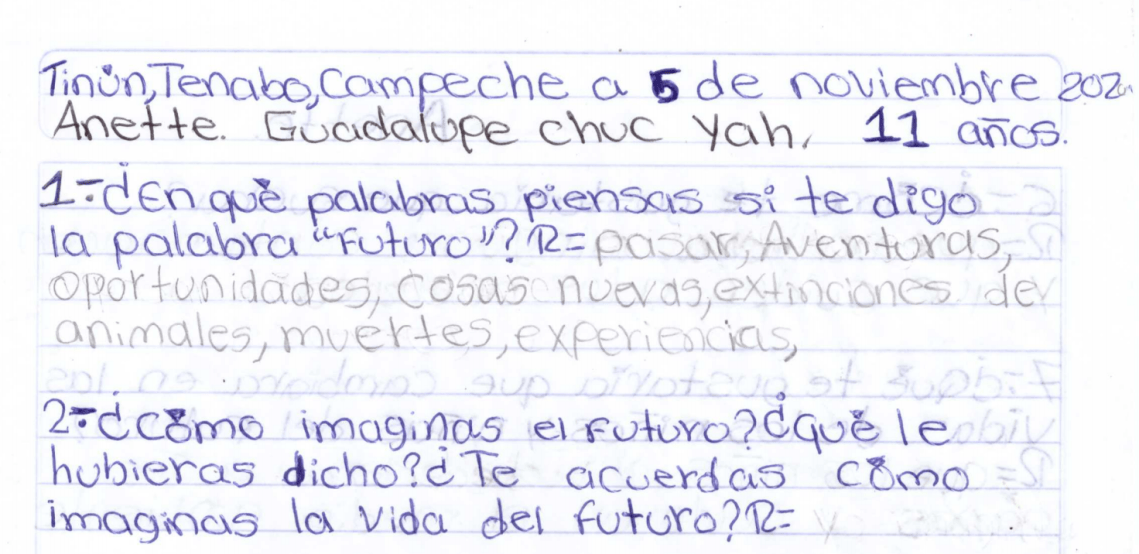 Tinún, Tenabo, Campeche a 5 de noviembre 202
Anette. Guadalupe chuc Yah, 11 años.
1-¿En què palabras piensas si te digo
la palabra "Futuro"? R= pasar, Aventuras,
oportunidades, cosas nuevas, extinciones de
animales, muertes, experiencias,
2-¿Cómo imaginas el futuro? ¿què le
hubieras dicho? ¿Te acuerdas cómo
imaginas la vida del futuro? R=